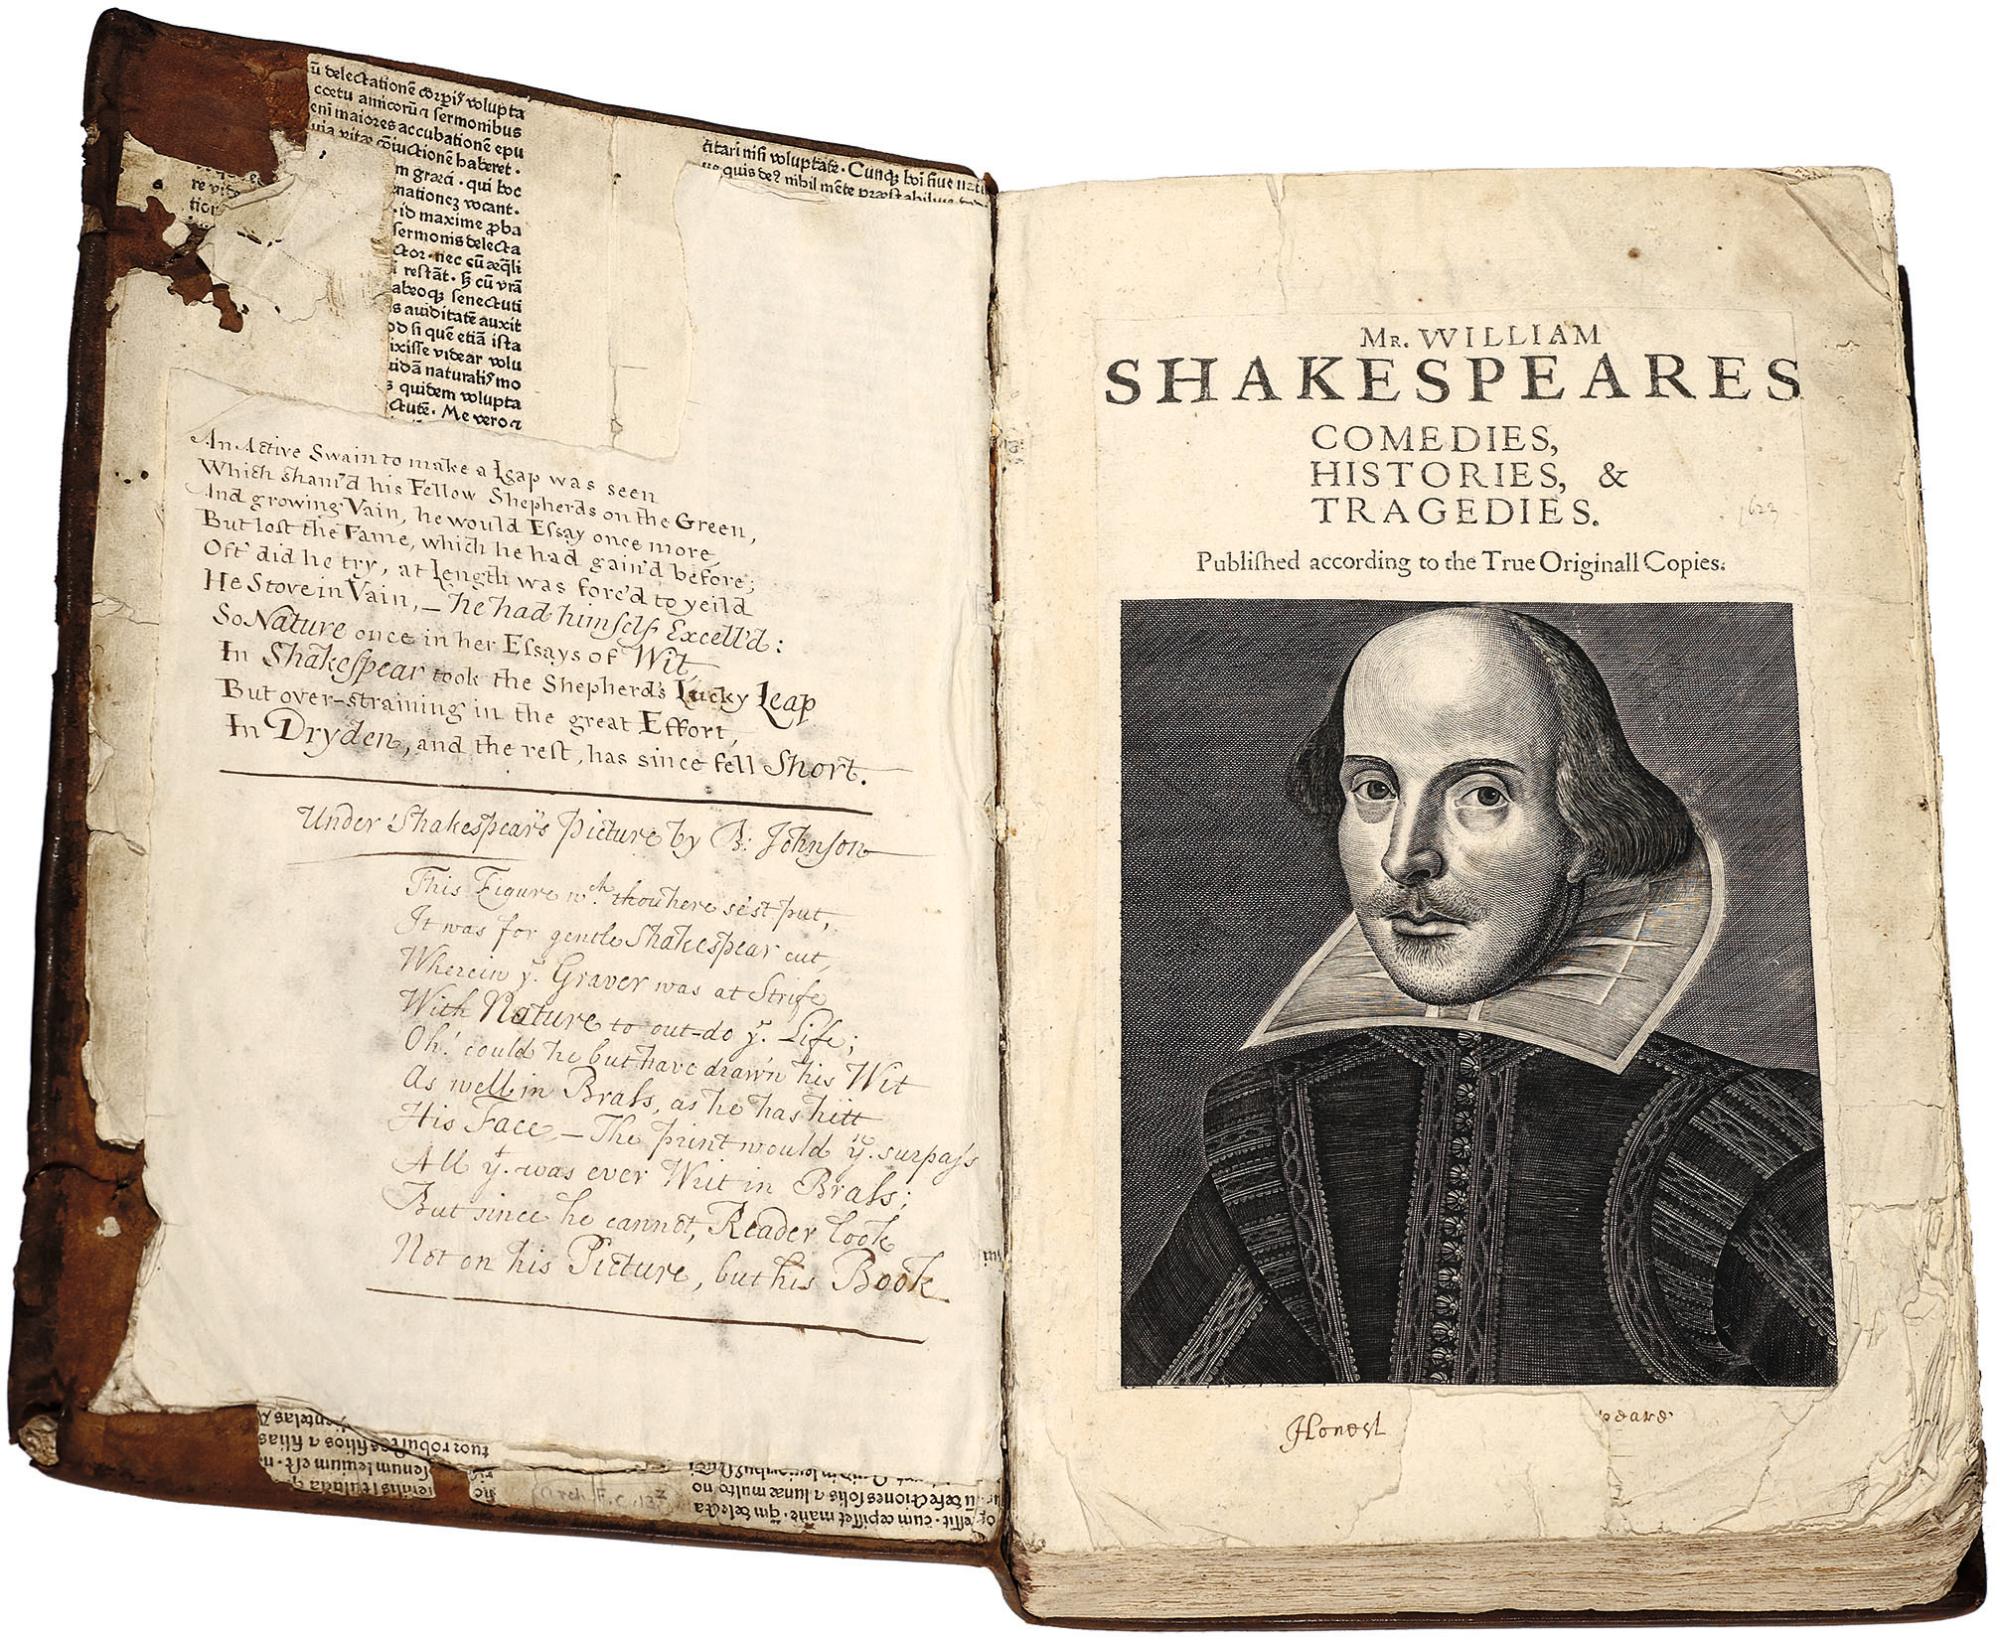 ū delectationē corpis volupta
cœtu amicorū sermonibus
eni maiores accubationē epu
uia vitæ cōiūctionē haberet.
m græci. qui hoc
nationez vocant.
id maxime pba
sermonis delecta
ctor. nec cū æqli
restāt. cū vrā
abeoq senectuti
s auiditatē auxit
od si quē etiā ista
ixisse videar volu
naturalis mo
s quidem volupta
ctutē. Me vero
re vide
tior
titari nisi voluptate. Cunq
quis nihil mēte præstabilius
An Active Swain to make a Leap was seen
Which sham'd his Fellow Shepherds on the Green,
And growing Vain, he would Eſsay once more,
But lost the Fame, which he had gain'd before;
Oft' did he try, at length was forc'd to yeild
He Stove in Vain, – he had himſelf Excell'd:
So Nature once in her Eſsays of Wit,
In Shakeſpear took the Shepherd's Lucky Leap
But over-straining in the great Effort,
In Dryden, and the rest, has since fell Short.
Under Shakespear's Picture by B: Johnſon
This Figure wch thou here se'st put,
It was for gentle Shakespear cut,
Wherein ye Graver was at Strife
With Nature to out-do ye Life;
Oh! could he but have drawn his Wit
As well in Braſs, as he has hitt
His Face, – The print would yn surpaſs
All yt was ever Writ in Braſs;
But since he cannot, Reader look
Not on his Picture, but his Book
tuoz
senum leuium est
no
Arch. F. c. 7
delecta
Mr. WILLIAM
SHAKESPEARES
COMEDIES,
HISTORIES, &
TRAGEDIES.
1623
Publiſhed according to the True Originall Copies.
Honest peare